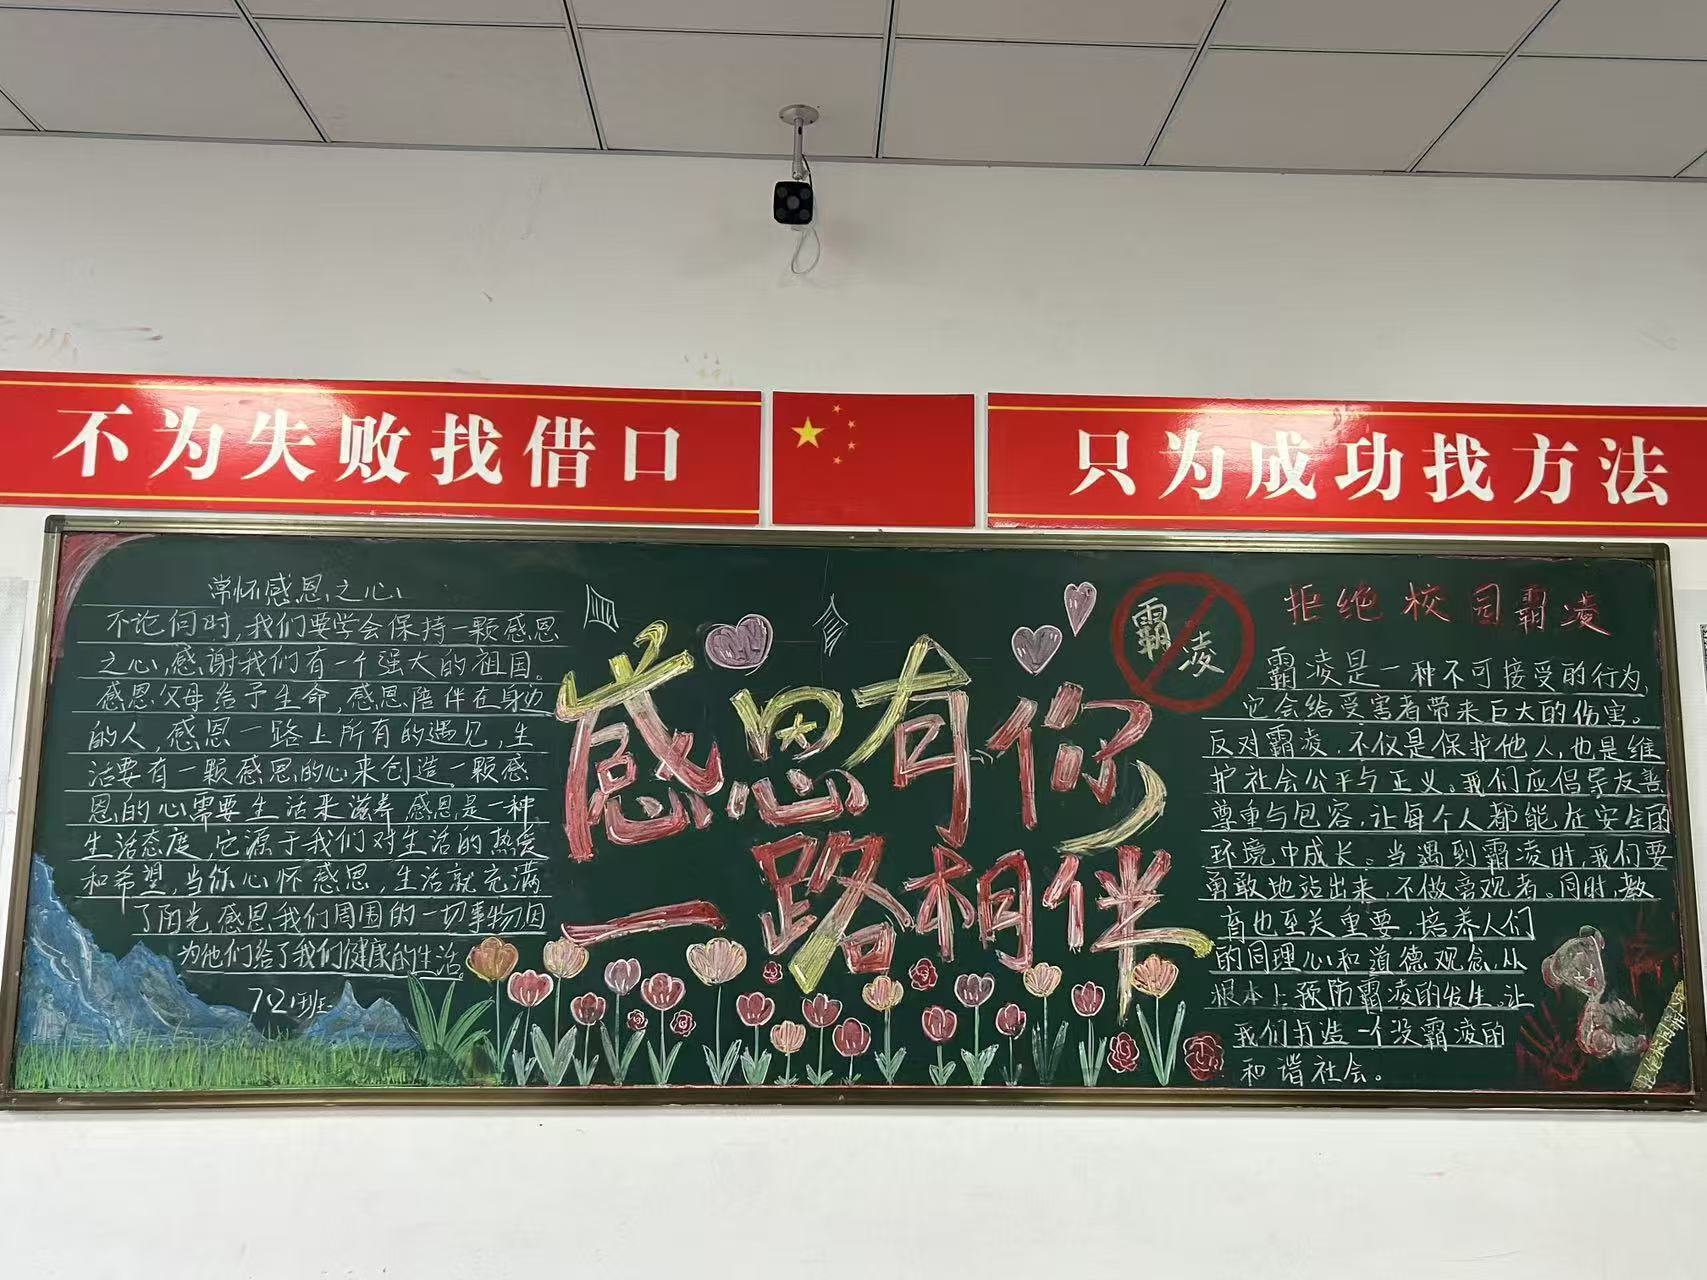 不为失败找借口
只为成功找方法
常怀感恩之心
不论何时,我们要学会保持一颗感恩
之心,感谢我们有一个强大的祖国。
感恩父母给予生命,感恩陪伴在身边
的人,感恩一路上所有的遇见,生
活要有一颗感恩的心来创造一颗感
恩的心需要生活来滋养感恩是一种
生活态度,它源于我们对生活的热爱
和希望,当你心怀感恩,生活就充满
了阳光感恩我们周围的一切事物因
为他们给了我们健康的生活
702班
感恩有你
一路相伴
霸凌
拒绝校园霸凌
霸凌是一种不可接受的行为,
它会给受害者带来巨大的伤害。
反对霸凌,不仅是保护他人,也是维
护社会公平与正义。我们应倡导友善
尊重与包容,让每个人都能在安全的
环境中成长。当遇到霸凌时,我们要
勇敢地站出来,不做旁观者。同时,教
育也至关重要,培养人们
的同理心和道德观念,从
根本上预防霸凌的发生,让
我们打造一个没霸凌的
和谐社会。